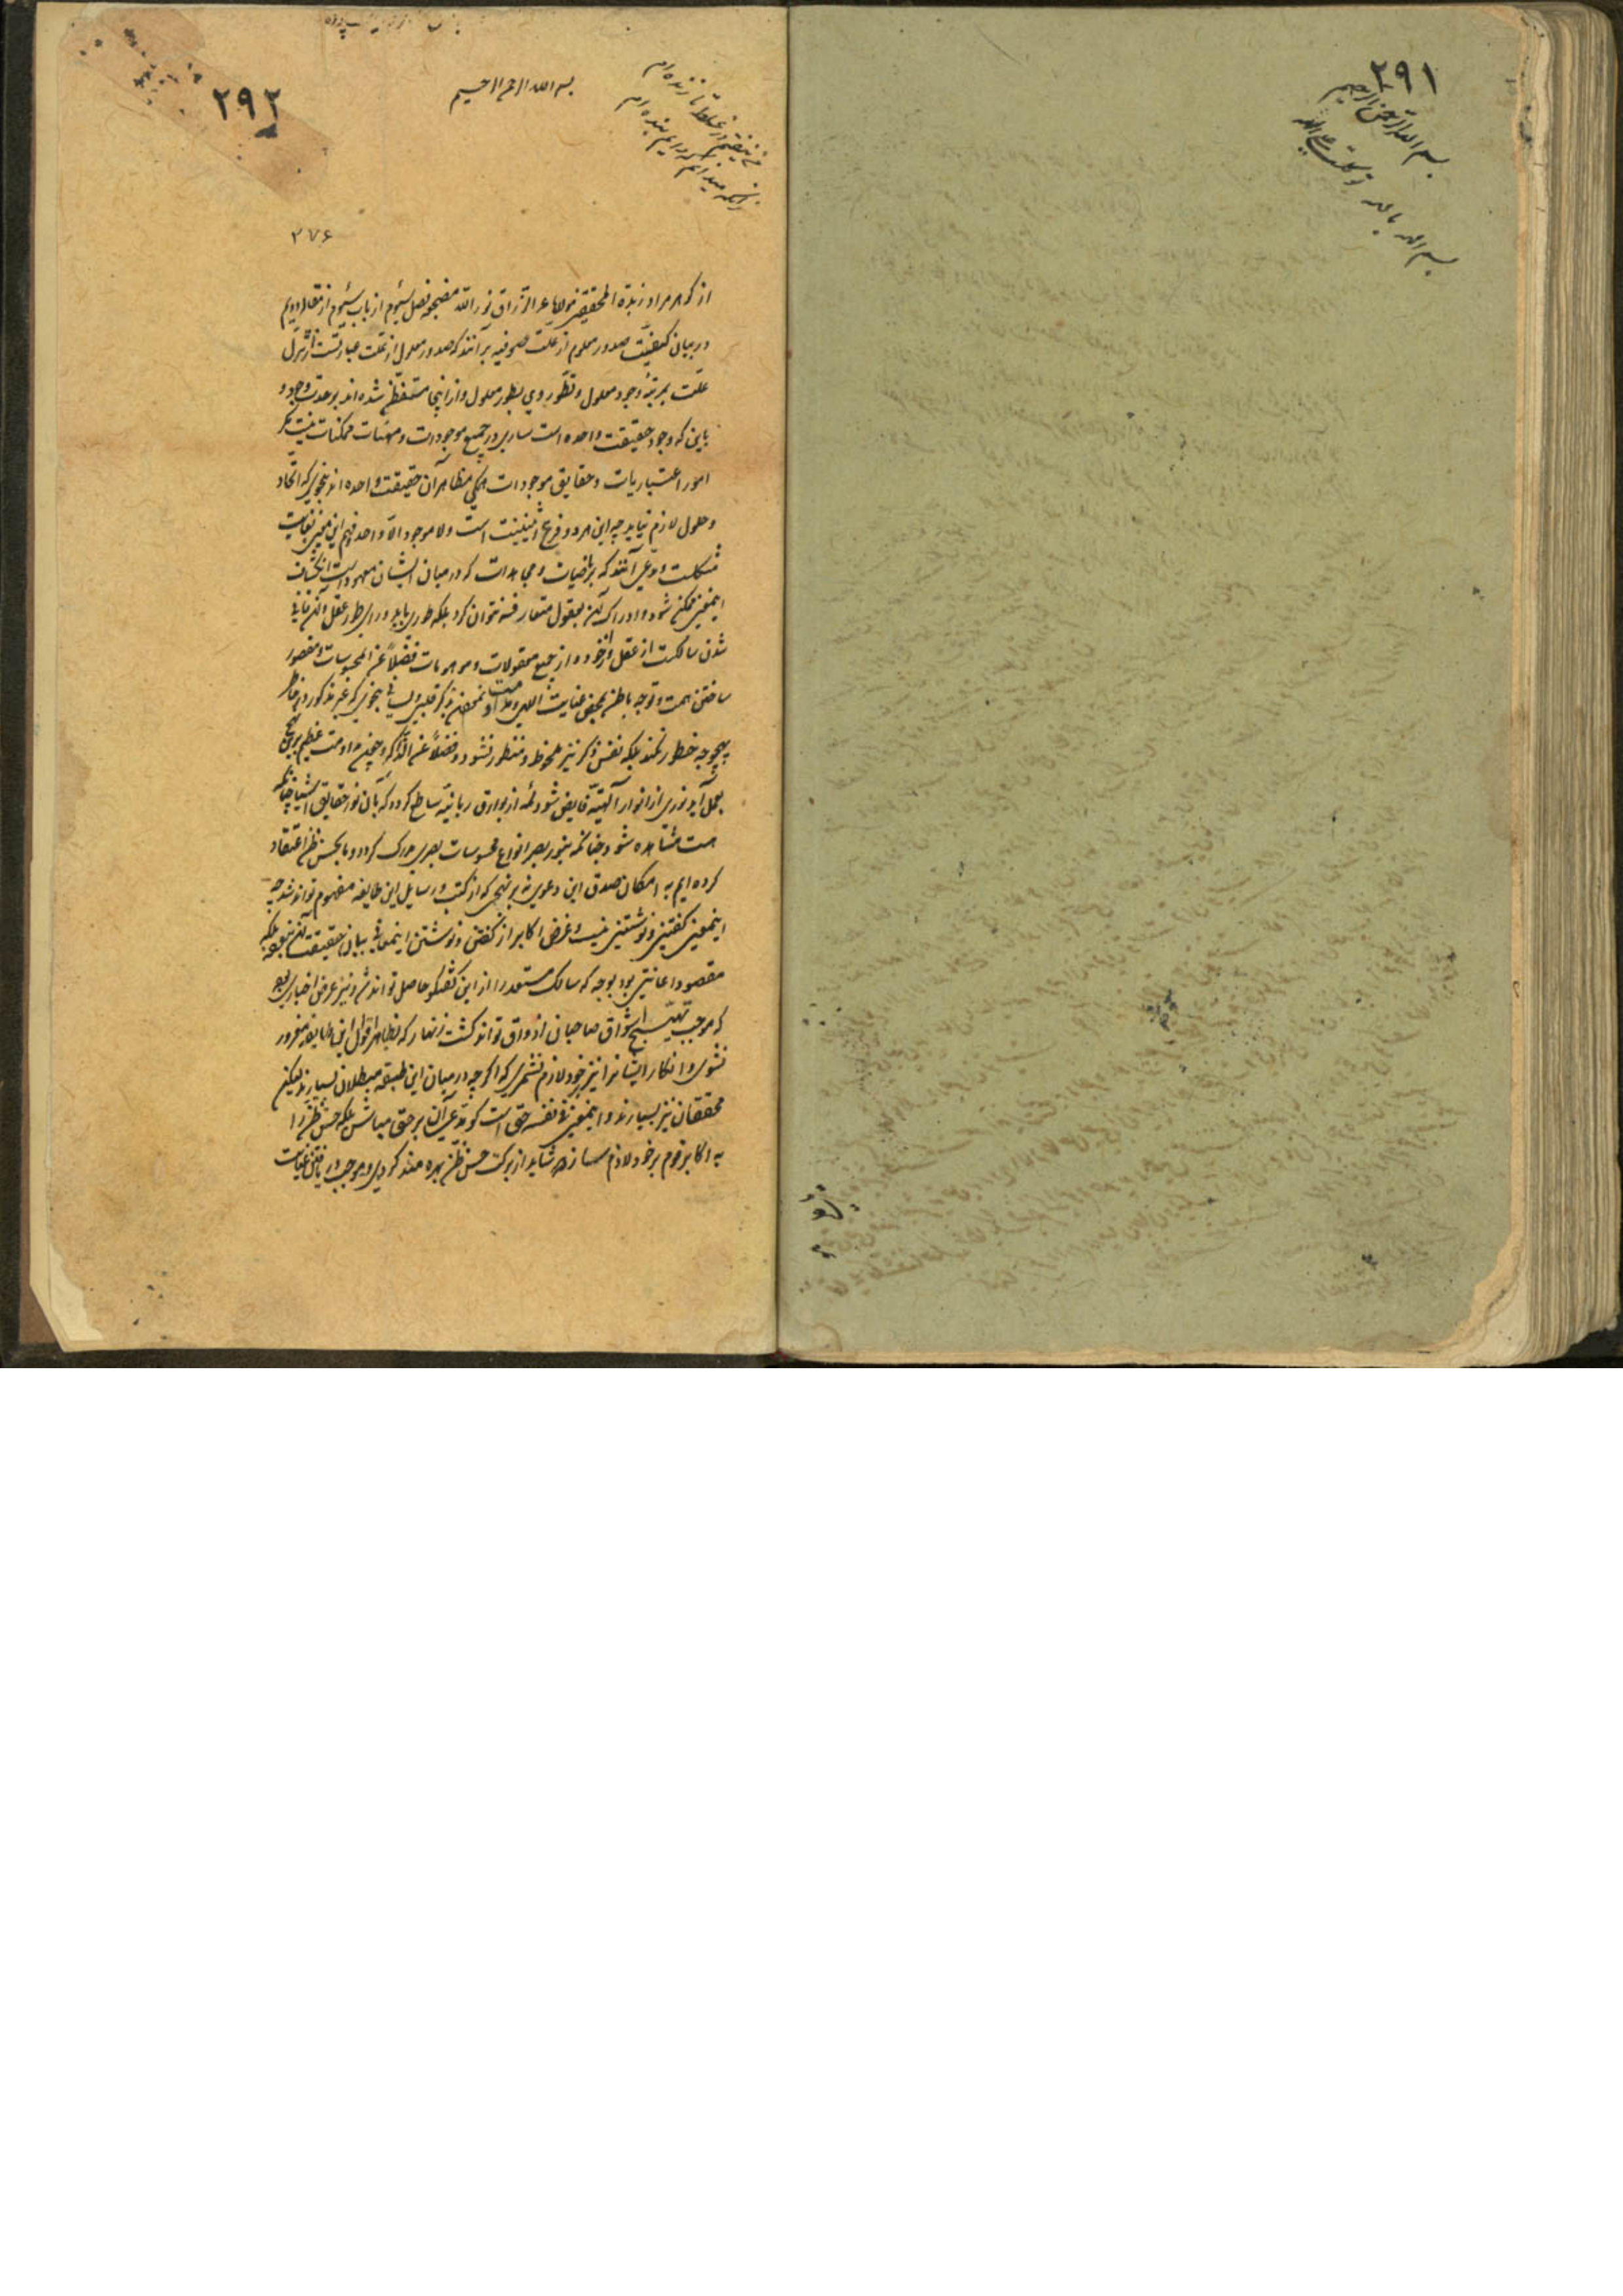 ۲۹۱
بسم الله الرحمن الرحیم
توکلت علی الله
بسم الله بالله
۲۹۲
بسم الله الرحمن الرحیم
در غلط تا زنده‌ام
بنده‌ام
۲۷۶
از گوهر مراد زبدة المحققین مولانا عبدالرزاق نور الله مضجعه فصل سیوم از باب سیوم از مقاله دویم
در بیان کیفیت صدور معلول از علت صوفیه برآنند که صدور معلول از علت عبارتست از تنزل
علت بمرتبهٔ وجود معلول و تطور وی بطور معلول و از اینجا متفطن شده‌اند بوحدت وجود و
باین که وجود حقیقت واحده است ساری در جمیع موجودات و مهیات ممکنات نیست مگر
امور اعتباریات و حقایق موجودات همگی مظاهر آن حقیقت واحده‌اند بنحوی که اتحاد
و حلول لازم نیاید چه این هر دو فرع اثنینیت است و لا موجود الا واحد و فهم این معنی بغایت
مشکلست و مدعی آنند که بریاضیات و مجاهدات که در میان ایشان معهود است انکشاف
اینمعنی ممکن شود و ادراک آن بعقول متعارفه نتوان کرد بلکه طوری باید ورای طور عقل و آن فانی
شدن سالکست از عقل و از خود و از جمیع معقولات و موهومات فضلا عن المحسوسات و مقصور
ساختن همت و توجه باطن بمحض عنایت اللهی و مداومت نمودن بذکر قلبی و لسانی بنحوی که غیر مذکور در خاطر
بهیچوجه خطور نکند بلکه نفس ذکر نیز ملحوظ و منظور نشود فضلا عن الذاکر و چون مداومت عظیم بر این نهج
بعمل آید نوری از انوار آلهیه فایض شود لمعه از بوارق ربانیه ساطع گردد که بآن نور حقایق اشیا چنانکه
هست مشاهده شود چنانکه بنور بصر انواع محسوسات بصری مدرک گردد و ما بحسن ظن اعتقاد
کرده‌ایم به امکان صدق این دعوی نه بر نهجی که از کتب و رسایل این طایفه مفهوم تواند شد چه
اینمعنی گفتنی و نوشتنی نیست و غرض اکابر از گفتن و نوشتن اینمعانی نه بیان حقیقت آن بوده بلکه
مقصود اعانتی بود بوجه که سالک مستعد را از این گفتگو حاصل تواند شد و نیز غرض اخباری بود
که موجب تهییج اشواق صاحبان اذواق تواند گشت زنهار که بظاهر اقوال این طایفه مغرور
نشوی و انکار ایشانرا نیز بر خود لازم نشمری که اگر چه در میان این طبقه مبطلان بسیارند لیکن
محققان نیز بسیارند و اینمعنی فی نفسه حق است گو مدعی آن بر حق مباش بلکه حسن ظن را
به اکابر قوم بر خود لازم ساز که شاید از برکت حسن ظن بهره‌مند گردی و موجب دریافتن عنایت